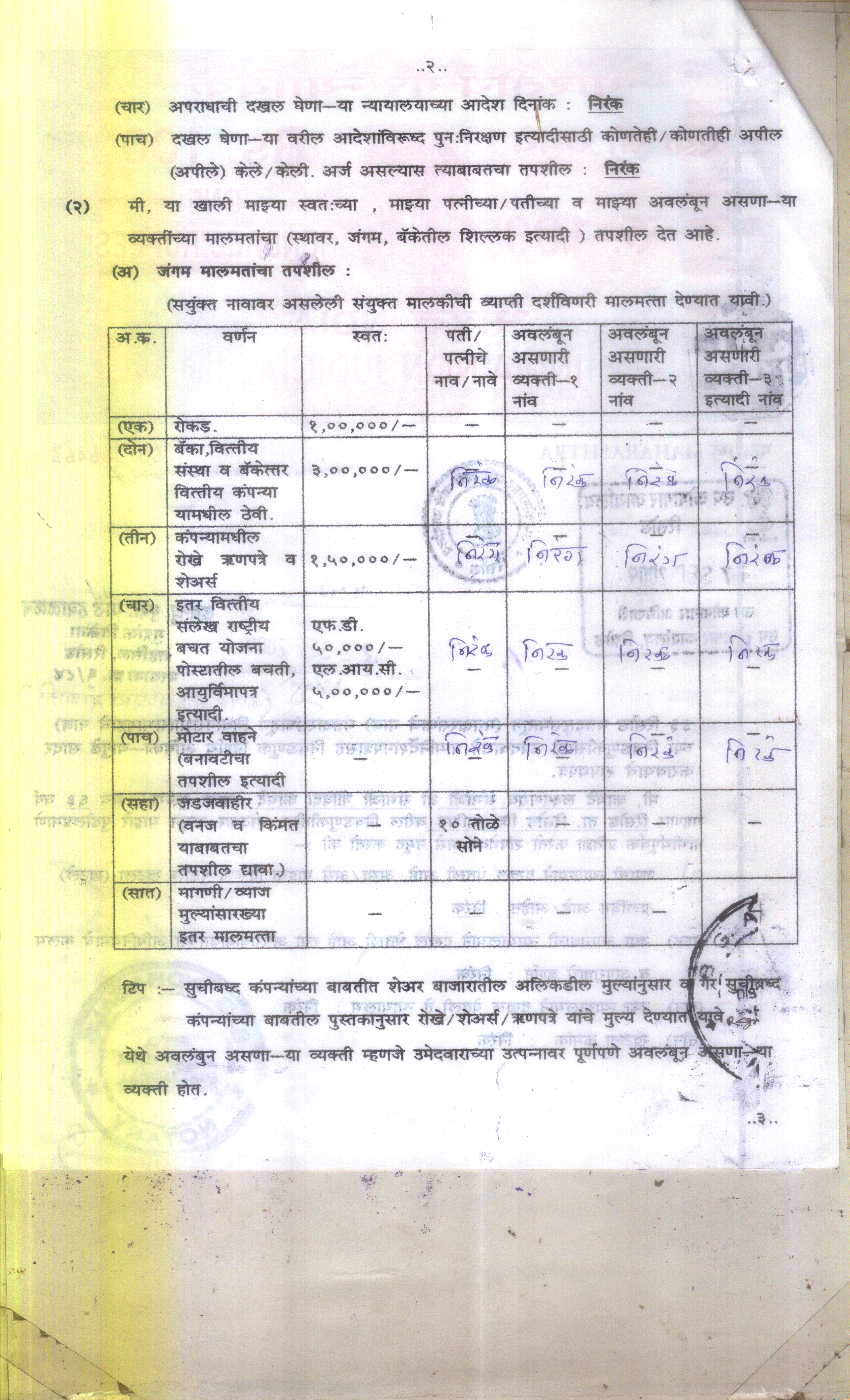 ..२..
(चार) अपराधाची दखल घेणा—या न्यायालयाच्या आदेश दिनांक : निरंक
(पाच) दखल घेणा—या वरील आदेशांविरूध्द पुन:निरक्षण इत्यादीसाठी कोणतेही/कोणतीही अपील
(अपीले) केले/केली. अर्ज असल्यास त्याबाबतचा तपशील : निरंक
(२) मी, या खाली माझ्या स्वत:च्या , माझ्या पत्नीच्या/पतीच्या व माझ्या अवलंबून असणा—या
व्यक्तींच्या मालमतांचा (स्थावर, जंगम, बॅकेतील शिल्लक इत्यादी ) तपशील देत आहे.
(अ) जंगम मालमतांचा तपशील :
(सयुंक्त नावावर असलेली संयुक्त मालकीची व्याप्ती दर्शविणरी मालमत्ता देण्यात यावी.)
अ.क. वर्णन स्वत: पती/ अवलंबून अवलंबून अवलंबून
पत्नीचे असणारी असणारी असणारी
नाव/नावे व्यक्ती—१ व्यक्ती—२ व्यक्ती—३
नांव नांव इत्यादी नांव
(एक) रोकड. १,००,०००/— — — — —
(दोन) बॅका,वित्तीय — — — —
संस्था व बॅकेत्तर ३,००,०००/— निरंक निरंक निरंक निरंक
वित्तीय कंपन्या
यामधील ठेवी.
(तीन) कंपन्यामधील — — — —
रोखे ऋणपत्रे व १,५०,०००/— निरंग निरंग निरंग निरंक
शेअर्स
(चार) इतर वित्तीय
संलेख राष्ट्रीय एफ.डी.
बचत योजना ५०,०००/— निरंक निरंक निरंक निरंक
पोस्टातील बचती, एल.आय.सी. — — — —
आयुर्विमापत्र ५,००,०००/—
इत्यादी.
(पाच) मोटार वाहने — — — —
(बनावटीचा — निरंक निरंक निरंक निरंक
तपशील इत्यादी
(सहा) जडजवाहीर
(वनज व किंमत — १० तोळे — — —
याबाबतचा सोने
तपशील द्यावा.)
(सात) मागणी/व्याज
मुल्यांसारख्या — — — — —
इतर मालमत्ता
टिप :— सुचीबध्द कंपन्यांच्या बाबतीत शेअर बाजारातील अलिकडील मुल्यांनुसार व गैर सुचीबध्द
कंपन्यांच्या बाबतील पुस्तकानुसार रोखे/शेअर्स/ऋणपत्रे यांचे मुल्य देण्यात यावे
येथे अवलंबुन असणा—या व्यक्ती म्हणजे उमेदवाराच्या उत्पन्नावर पूर्णपणे अवलंबून असणा—या
व्यक्ती होत.
..३..